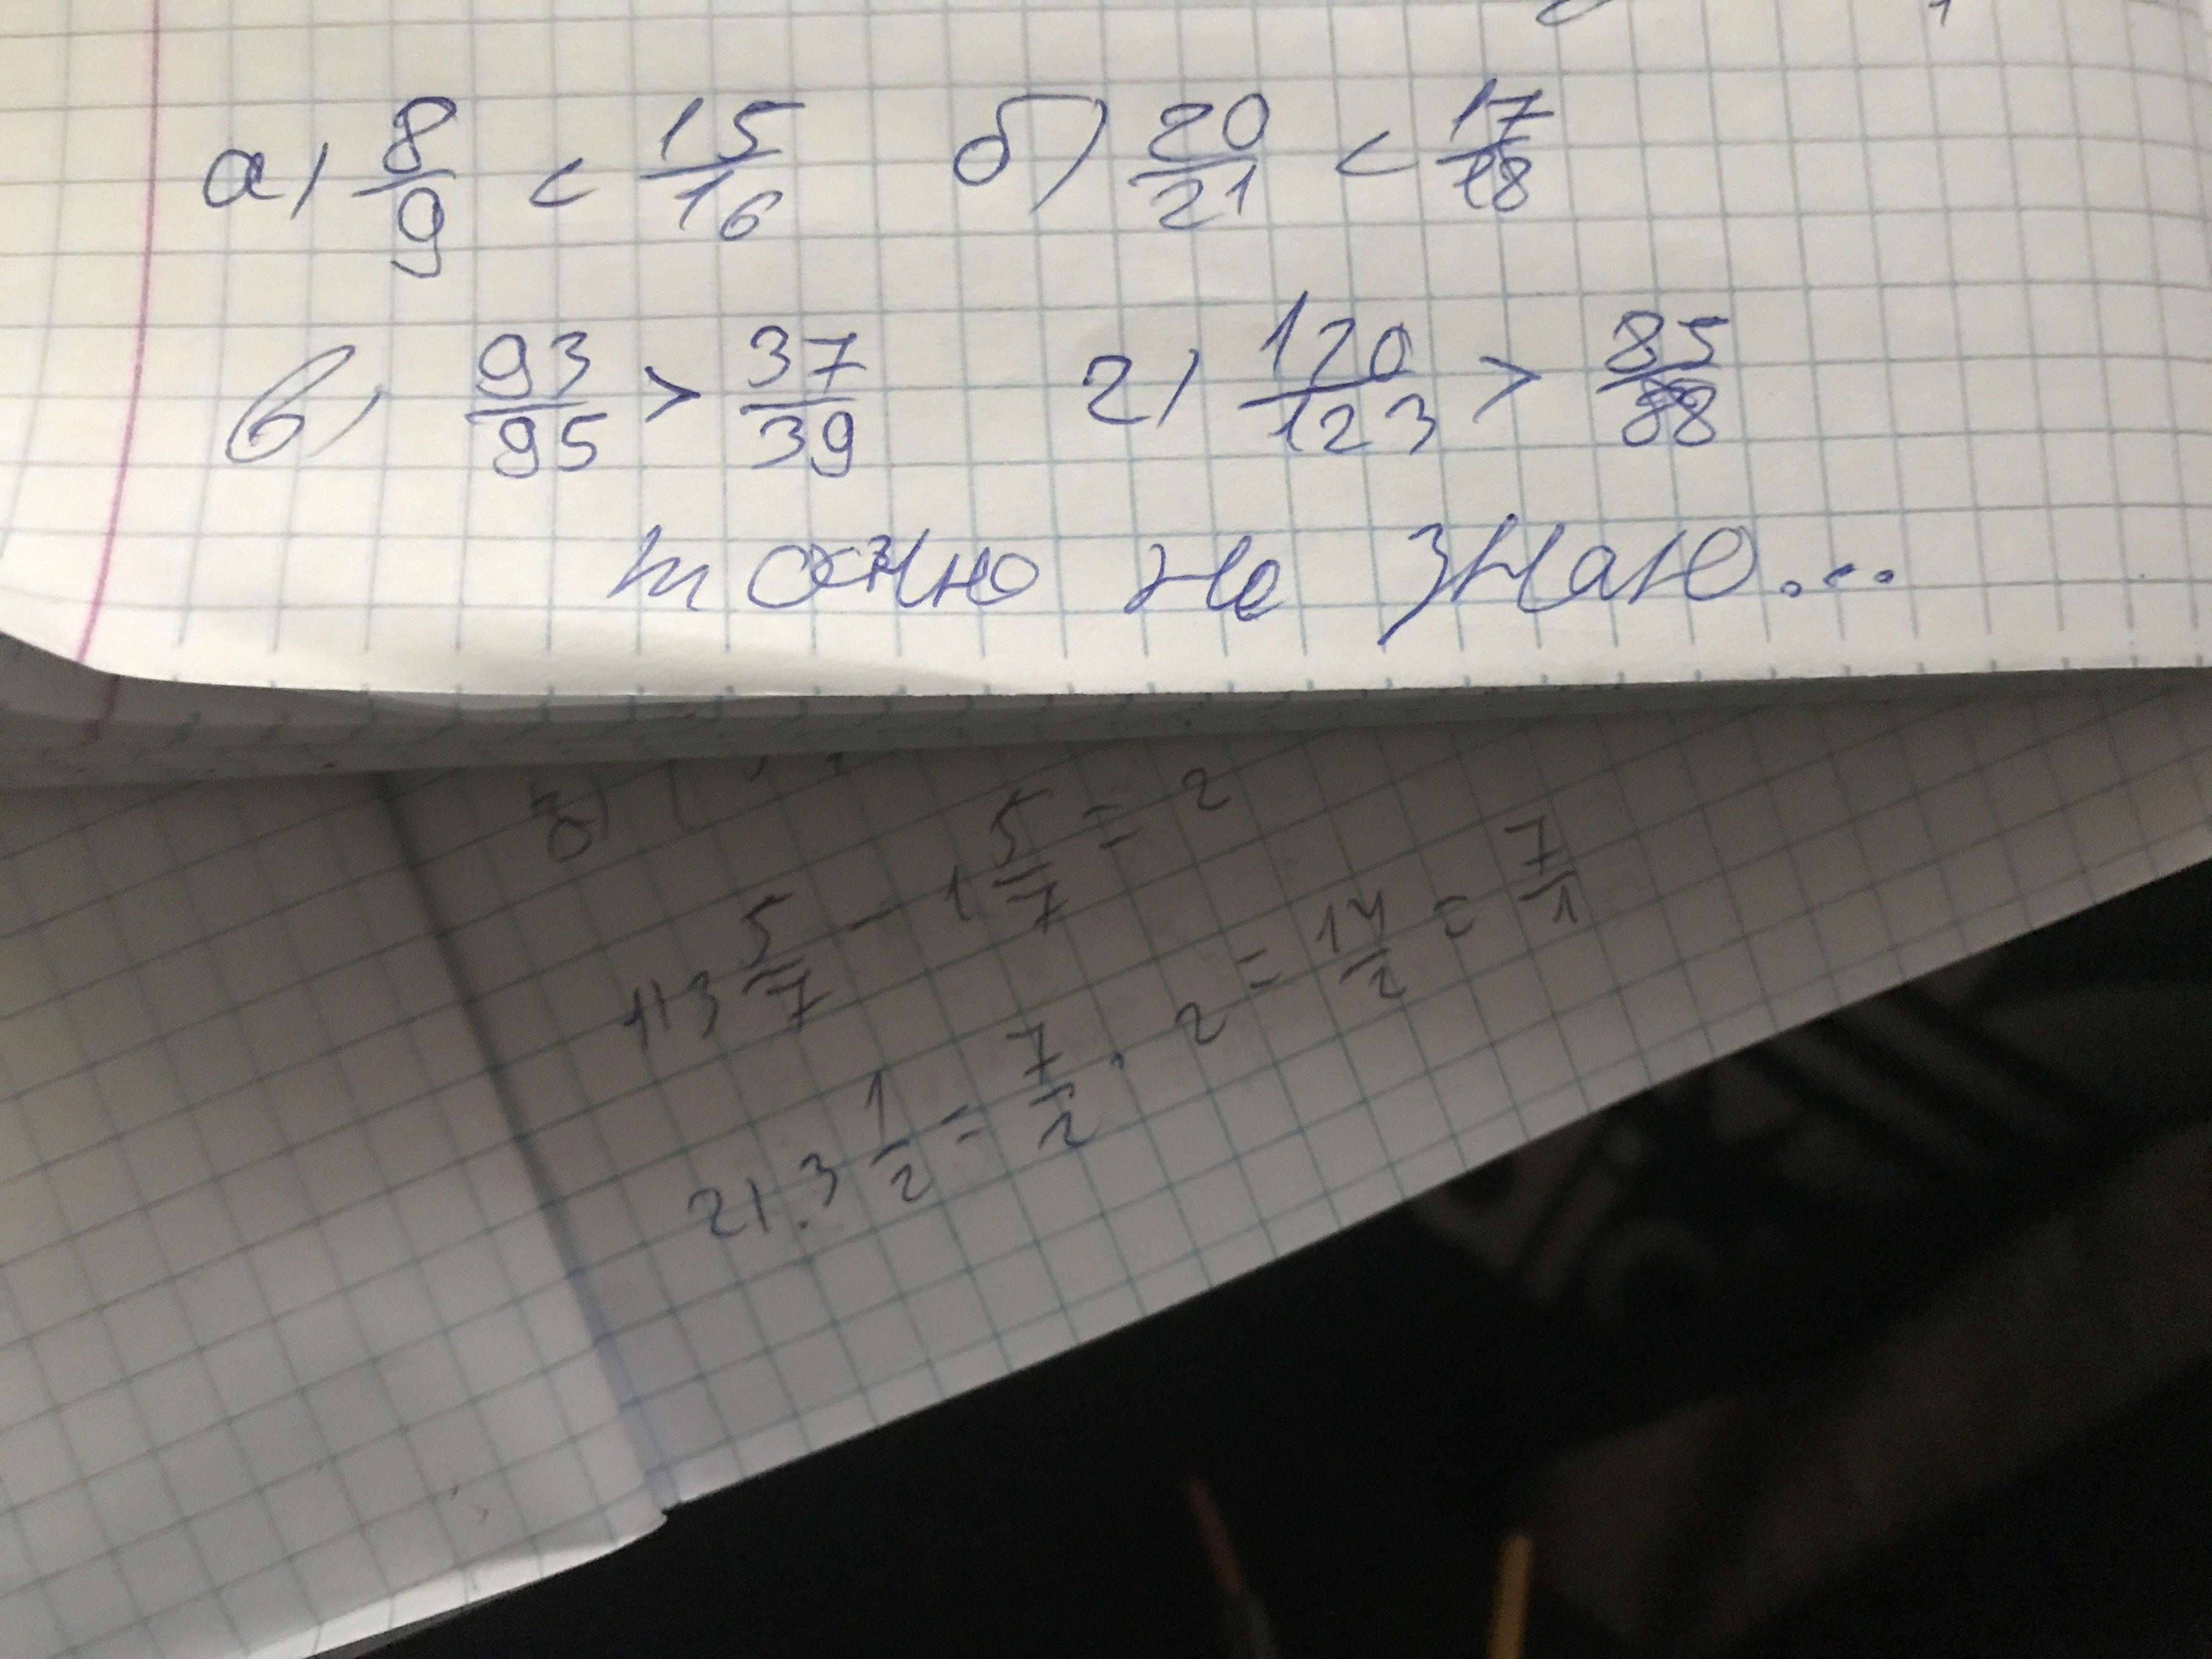 а) 8/9 < 15/16 б) 20/21 < 17/18
в) 93/95 > 37/39 г) 120/123 > 85/88
точно не знаю...
з) (
1) 3 5/7 - 1 5/7 = 2
2). 3 1/2 = 7/2 · 2 = 14/2 = 7/1